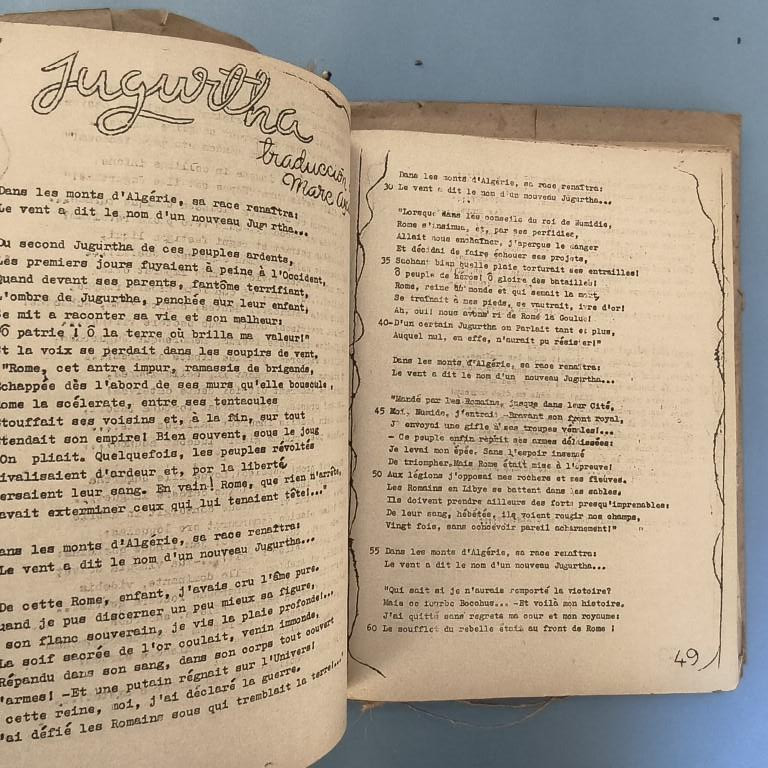 Jugurtha
traducción
Marc
Dans les monts d'Algérie, sa race renaîtra:
Le vent a dit le nom d'un nouveau Jugurtha...
Du second Jugurtha de ces peuples ardents,
Les premiers jours fuyaient à peine à l'Occident,
Quand devant ses parents, fantôme terrifiant,
L'ombre de Jugurtha, penchée sur leur enfant,
Se mit a raconter sa vie et son malheur:
"Ô patrie ! Ô la terre où brilla ma valeur!"
Et la voix se perdait dans les soupirs de vent,
"Rome, cet antre impur, ramassis de brigands,
Echappée dès l'abord de ses murs qu'elle bouscule,
Rome la scélerate, entre ses tentacules
Etouffait ses voisins et, à la fin, sur tout
Etendait son empire! Bien souvent, sous le joug
On pliait. Quelquefois, les peuples révoltés
Rivalisaient d'ardeur et, por la liberté
Versaient leur sang. En vain! Rome, que rien n'arrête,
Savait exterminer ceux qui lui tenaient tête!..."
Dans les monts d'Algérie, sa race renaîtra:
Le vent a dit le nom d'un nouveau Jugurtha...
"De cette Rome, enfant, j'avais cru l'âme pure.
Quand je pus discerner un peu mieux sa figure,
A son flanc souverain, je vis la plaie profonde!...
La soif sacrée de l'or coulait, venin immonde,
Répandu dans son sang, dans son corps tout couvert
d'armes! -Et une putain régnait sur l'Univers!
A cette reine, moi, j'ai déclaré la guerre,
J'ai défié les Romains sous qui tremblait la terre!..."
Dans les monts d'Algérie, sa race renaîtra:
30 Le vent a dit le nom d'un nouveau Jugurtha...
"Lorsque dans les conseils du roi de Numidie,
Rome s'insinua, et, par ses perfidies,
Allait nous enchaîner, j'aperçus le danger
Et décidai de faire échouer ses projets,
35 Sachant bien quelle plaie torturait ses entrailles!
Ô peuple de héros! Ô gloire des batailles!
Rome, reine du monde et qui semait la mort,
Se traînait à mes pieds, se vautrait, ivre d'or!
Ah, oui! nous avons ri de Rome la Goulue!
40-D'un certain Jugurtha on Parlait tant et plus,
Auquel nul, en effe, n'aurait pu résister!"
Dans les monts d'Algérie, sa race renaîtra:
Le vent a dit le nom d'un nouveau Jugurtha...
"Mandé par les Romains, jusque dans leur Cité,
45 Moi, Numide, j'entrai -Bravant son front royal,
J' envoyai une gifle à ses troupes vénales!...
- Ce peuple enfin reprit ses armes délaissées:
Je levai mon épée. Sans l'espoir insensé
De triompher. Mais Rome était mise à l'épreuve!
50 Aux légions j'opposai mes rochers et ses fleuves.
Les Romains en Libye se battent dans les sables,
Ils doivent prendre ailleurs des forts presqu'imprenables:
De leur sang, hébétés, ils voient rougir nos champs,
Vingt fois, sans concevoir pareil acharnement!"
55 Dans les monts d'Algérie, sa race renaîtra:
Le vent a dit le nom d'un nouveau Jugurtha...
"Qui sait si je n'aurais remporté la victoire?
Mais ce fourbe Bocchus... -Et voilà mon histoire.
J'ai quitté sans regrets ma cour et mon royaume:
60 Le souffle du rebelle était au front de Rome !
49